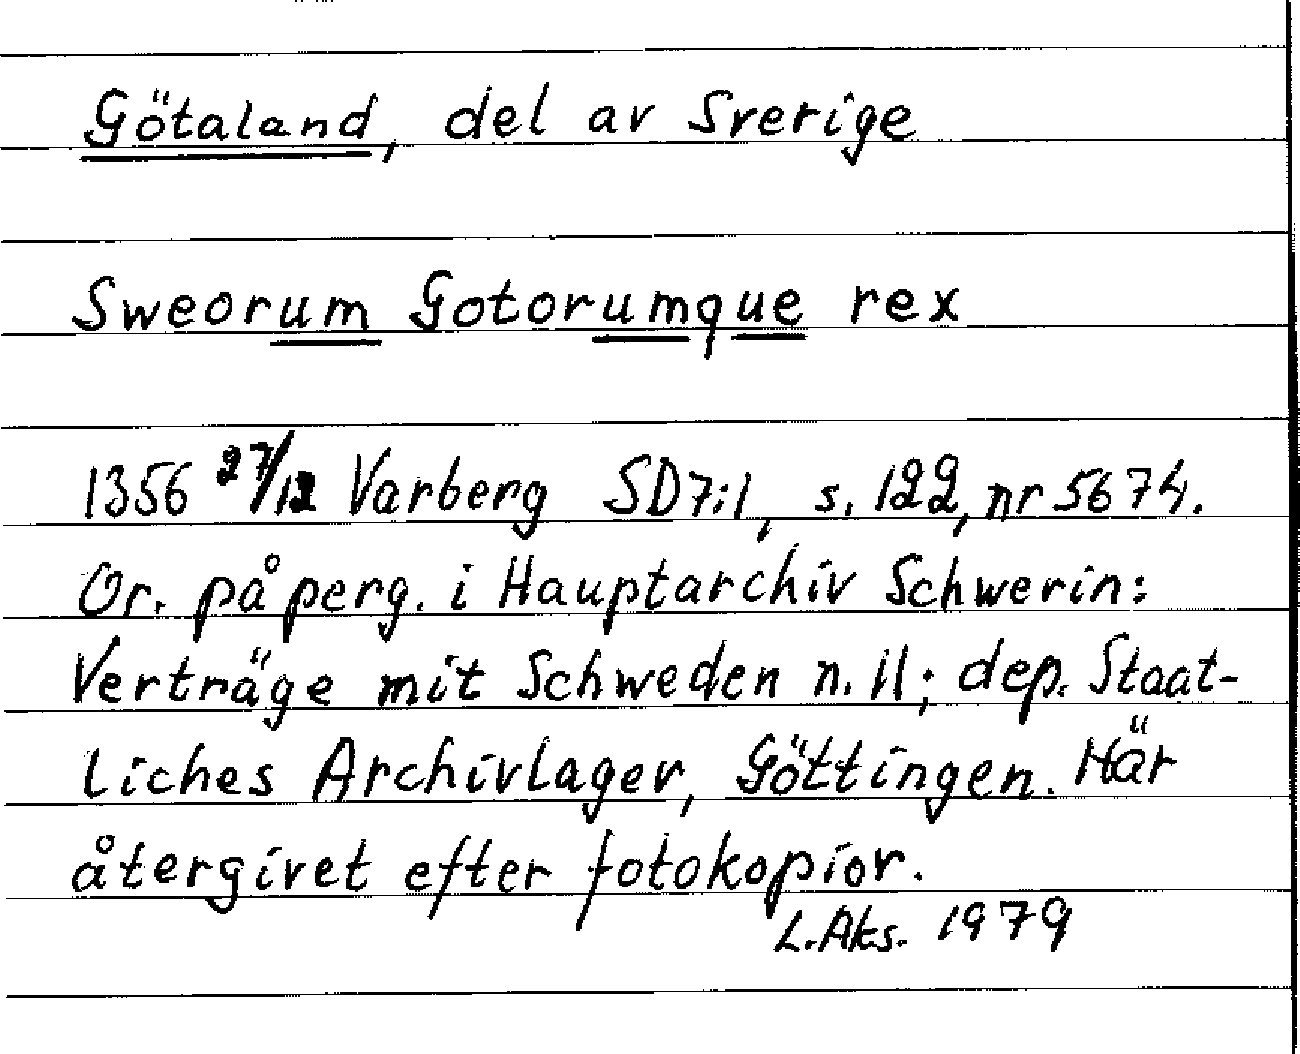 Götaland, del av Sverige
Sweorum Gotorumque rex
1356 27/12 Varberg SD7:1, s. 122, nr 5674.
Or. på perg. i Hauptarchiv Schwerin:
Verträge mit Schweden n. 11; dep. Staat-
liches Archivlager, Göttingen. Här
återgivet efter fotokopior.
L.Aks. 1979